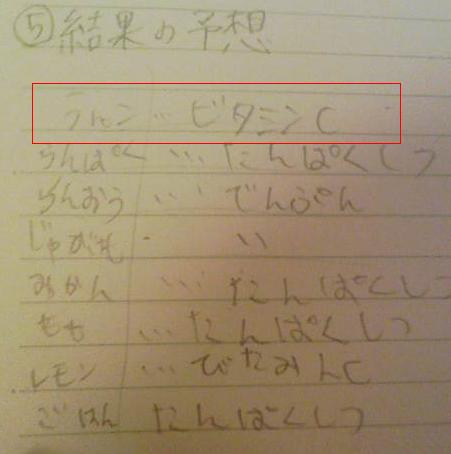 ⑤結果の予想
ラモン…ビタミンC
らんぱく…たんぱくしつ
らんおう…でんぷん
じゃがも・い
みかん…たんぱくしつ
もも…たんぱくしつ
レモン…びたみんC
ごはん たんぱくしつ